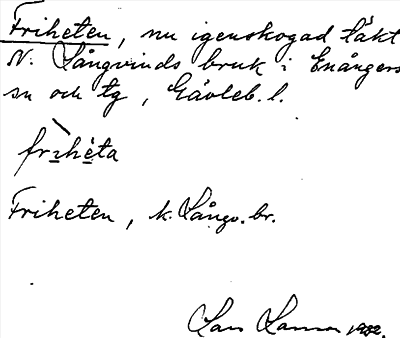 Friheten, nu igenskogad täkt
N. Långvinds bruk i Enångers
sn och tg, Gävleb. l.
frihèta
Friheten, k. Långv. br.
Lars 1982.